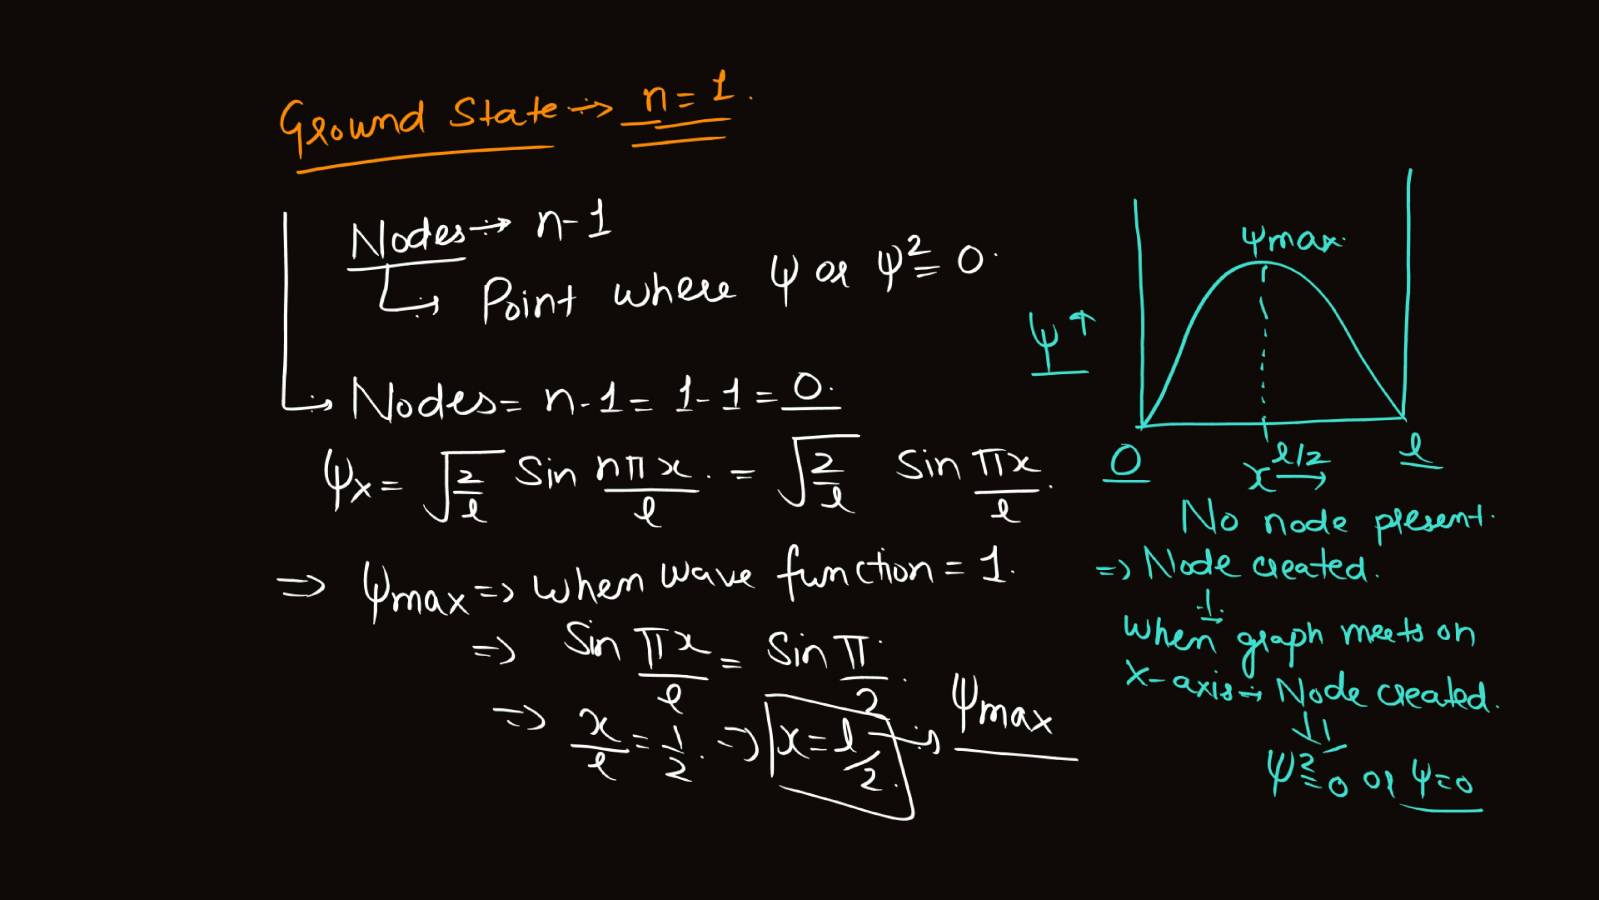 Ground State → n=1.
Nodes → n-1
↳ Point where ψ or ψ²=0.
↳ Nodes = n-1 = 1-1 = 0.
ψx = √(2/l) Sin nπx/l. = √(2/l) Sin πx/l.
⇒ ψmax ⇒ when wave function = 1.
⇒ Sin πx/l = Sin π/2.
⇒ x/l = 1/2. ⇒ x = l/2. → ψmax
ψmax.
ψ ↑
0
l/2
x →
l
No node present.
⇒ Node created.
↓
when graph meets on
X-axis → Node created.
⇓
ψ²=0 or ψ=0